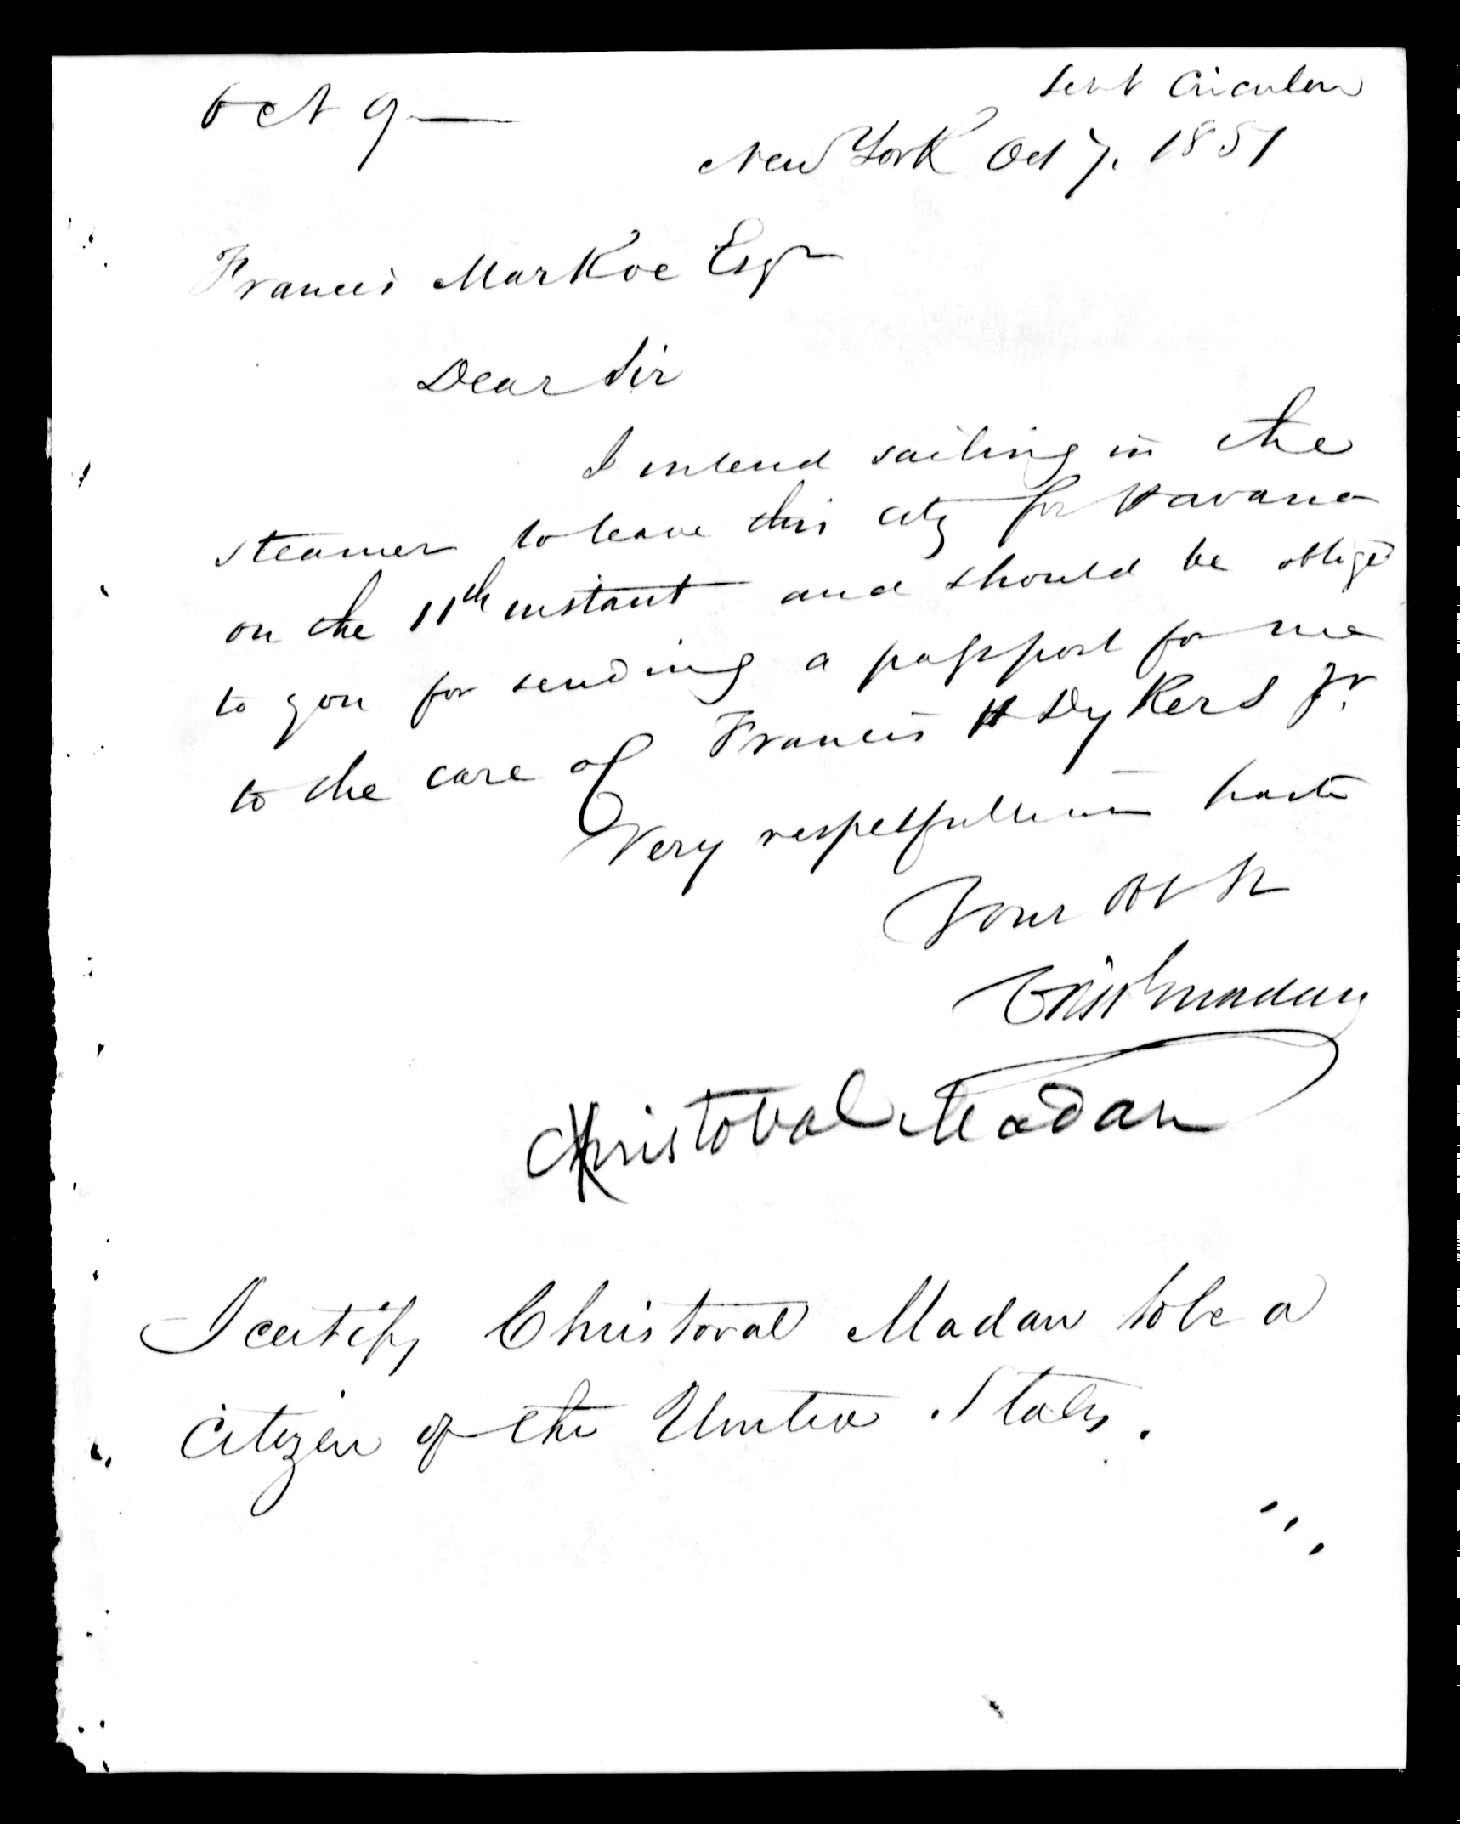 Oct 9—
Sent Circular
New York Oct 7. 1851
Francis Markoe Esqr
Dear Sir
I intend sailing in the
steamer to leave this city for Havana
on the 11th instant and should be obliged
to you for sending a passport for me
to the care of Francis H Dykers Jr.
Very respectfully in haste
Your Obt St
Cristl Madan
Christoval Madan
I certify Christoval Madan to be a
citizen of the United States.